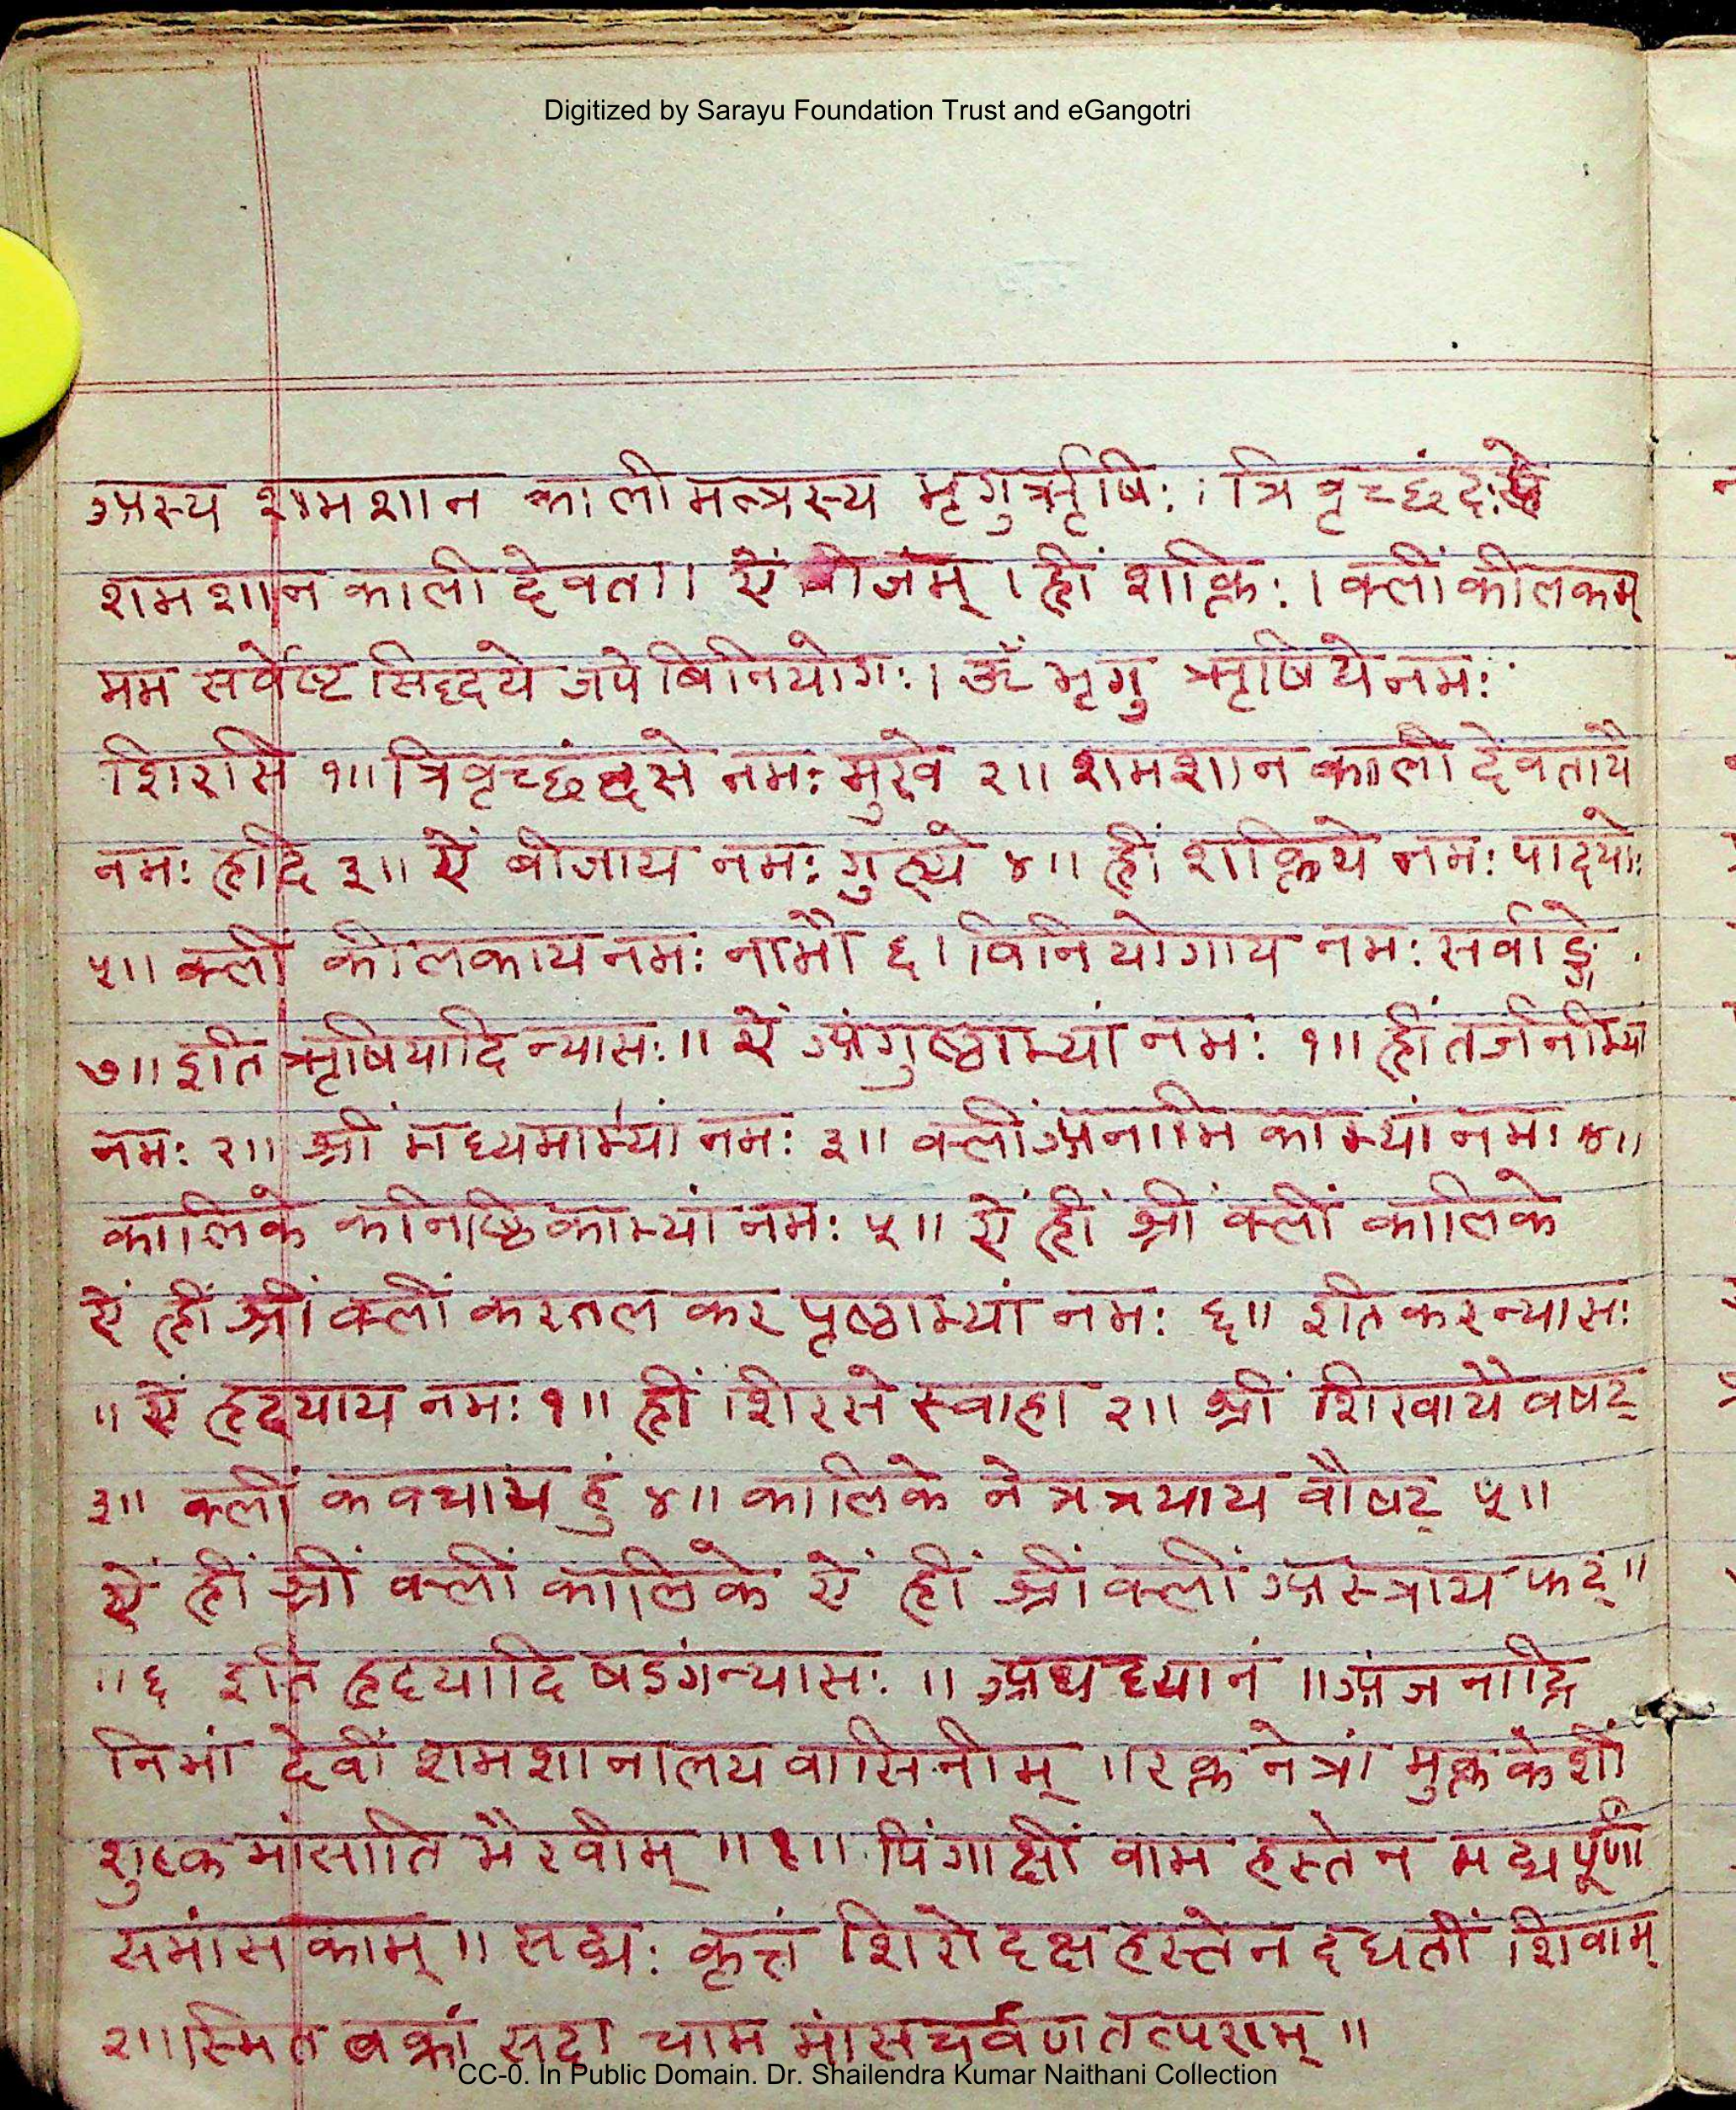 Digitized by Sarayu Foundation Trust and eGangotri
अस्य शमशान काली मन्त्रस्य भृगुर्ऋषिः । त्रिवृच्छंदः
शमशान काली देवता । ऐं बीजंम् । ह्रीं शक्तिः । क्लीं कीलकम्
मम सर्वेष्ट सिद्धये जपे बिनियोगः । ॐ भृगु ऋषिये नमः
शिरसि १॥ त्रिवृच्छंदसे नमः मुखे २॥ शमशान काली देवतायै
नमः हृदि ३॥ ऐं बीजाय नमः गुह्ये ४॥ ह्रीं शक्तिये नमः पादयोः
५॥ क्लीं कीलकाय नमः नाभौ ६। विनियोगाय नमः सर्वाङ्गे
७॥ इति ऋषियादि न्यासः॥ ऐं अंगुष्ठाभ्यां नमः १॥ ह्रीं तर्जनीभ्यां
नमः २॥ श्रीं मध्यमाभ्यां नमः ३॥ क्लीं अनामिकाभ्यां नमः ४॥
कालिके कनिष्ठिकाभ्यां नमः ५॥ ऐं ह्रीं श्रीं क्लीं कालिके
ऐं ह्रीं श्रीं क्लीं करतल कर पृष्ठाभ्यां नमः ६॥ इति करन्यासः
॥ ऐं हृदयाय नमः १॥ ह्रीं शिरसे स्वाहा २॥ श्रीं शिखायै वषट्
३॥ क्लीं कवचाय हुं ४॥ कालिके नेत्रत्रयाय वौषट् ५॥
ऐं ह्रीं श्रीं क्लीं कालिके ऐं ह्रीं श्रीं क्लीं अस्त्राय फट्॥
॥६ इति हृदयादि षडंगन्यासः ॥ अथ ध्यानं ॥ अंजनाद्रि
निभां देवीं शमशानालय वासिनीम् ॥ रक्त नेत्रां मुक्त केशीं
शुष्क मांसाति भैरवीम् ॥१॥ पिंगाक्षीं वाम हस्तेन मद्य पूर्णां
समांसकाम् ॥ सद्यः कृत्तं शिरो दक्ष हस्तेन दधतीं शिवाम्
२॥ स्मित वक्त्रां सदा चाम मांस चर्वण तत्पराम् ॥
CC-0. In Public Domain. Dr. Shailendra Kumar Naithani Collection